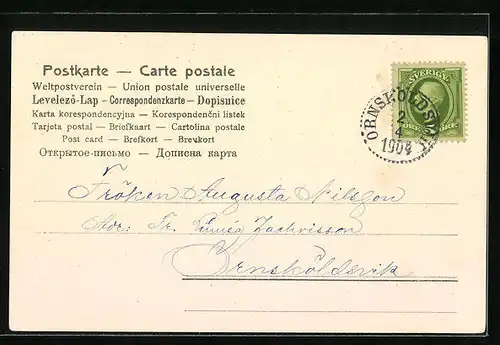 Postkarte — Carte postale
Weltpostverein — Union postale universelle
Levelező-Lap — Correspondenzkarte — Dopisnice
Karta korespondencyjna — Korespondenčni listek
Tarjeta postal — Briefkaart — Cartolina postale
Post card — Brefkort — Brevkort
Открытое-письмо — Дописна карта
SVERIGE
ÖRNSKÖLDSVIK
2
4
1904
ÖRE
Fröken Augusta Nilsson
Adr: Fr. Zachrisson
Örnsköldsvik